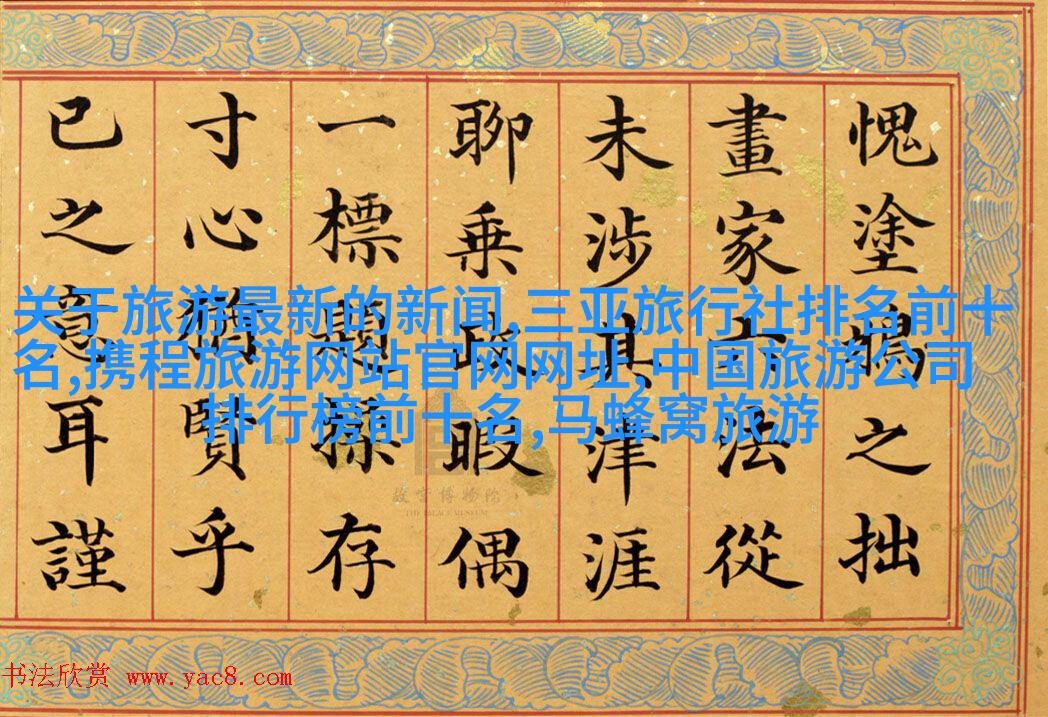 愧塗鴉之拙
畫家六法從
未涉其津涯
聊乘政暇偶
一標題操存
寸心猶賢乎
已之意耳謹
关于旅游最新的新闻,三亚旅行社排名前十
名,携程旅游网站官网网址,中国旅游公司
排行榜前十名,马蜂窝旅游
故宫博物院
THE PALACE MUSEUM
书法欣赏 www.yac8.com